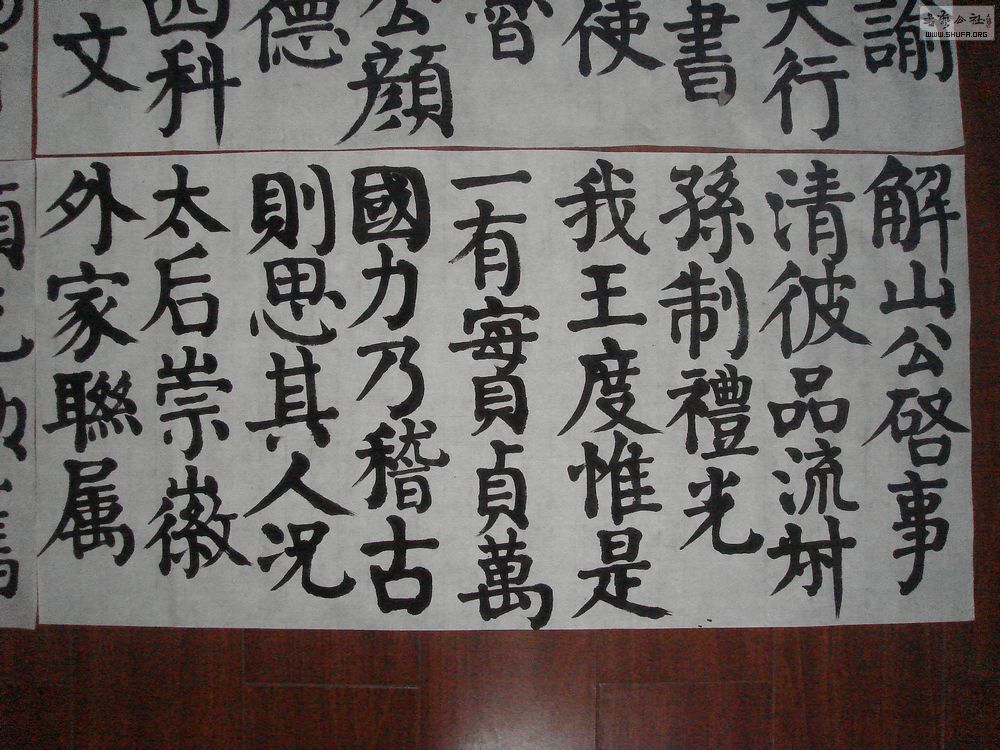 諭
大行
書
使
公顔
德
四科
文
解山公啓事
清彼品流叔
孫制禮光
我王度惟是
一有實貞萬
國力乃稽古
則思其人況
太后崇徽
外家聯属
WWW.SHUFA.ORG